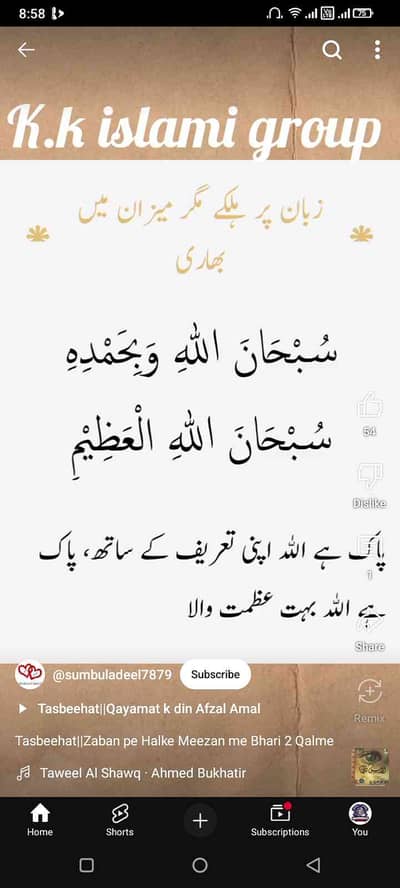 8:58
75
K.k islami group
زبان پر ہلکے مگر میزان میں
بھاری
سُبْحَانَ اللهِ وَبِحَمْدِهِ
سُبْحَانَ اللهِ الْعَظِيْمِ
پاک ہے اللہ اپنی تعریف کے ساتھ، پاک
ہے اللہ بہت عظمت والا۔
54
Dislike
1
Share
@sumbuladeel7879 Subscribe
Tasbeehat||Qayamat k din Afzal Amal
Remix
Tasbeehat||Zaban pe Halke Meezan me Bhari 2 Qalme
Taweel Al Shawq · Ahmed Bukhatir
Home Shorts Subscriptions You